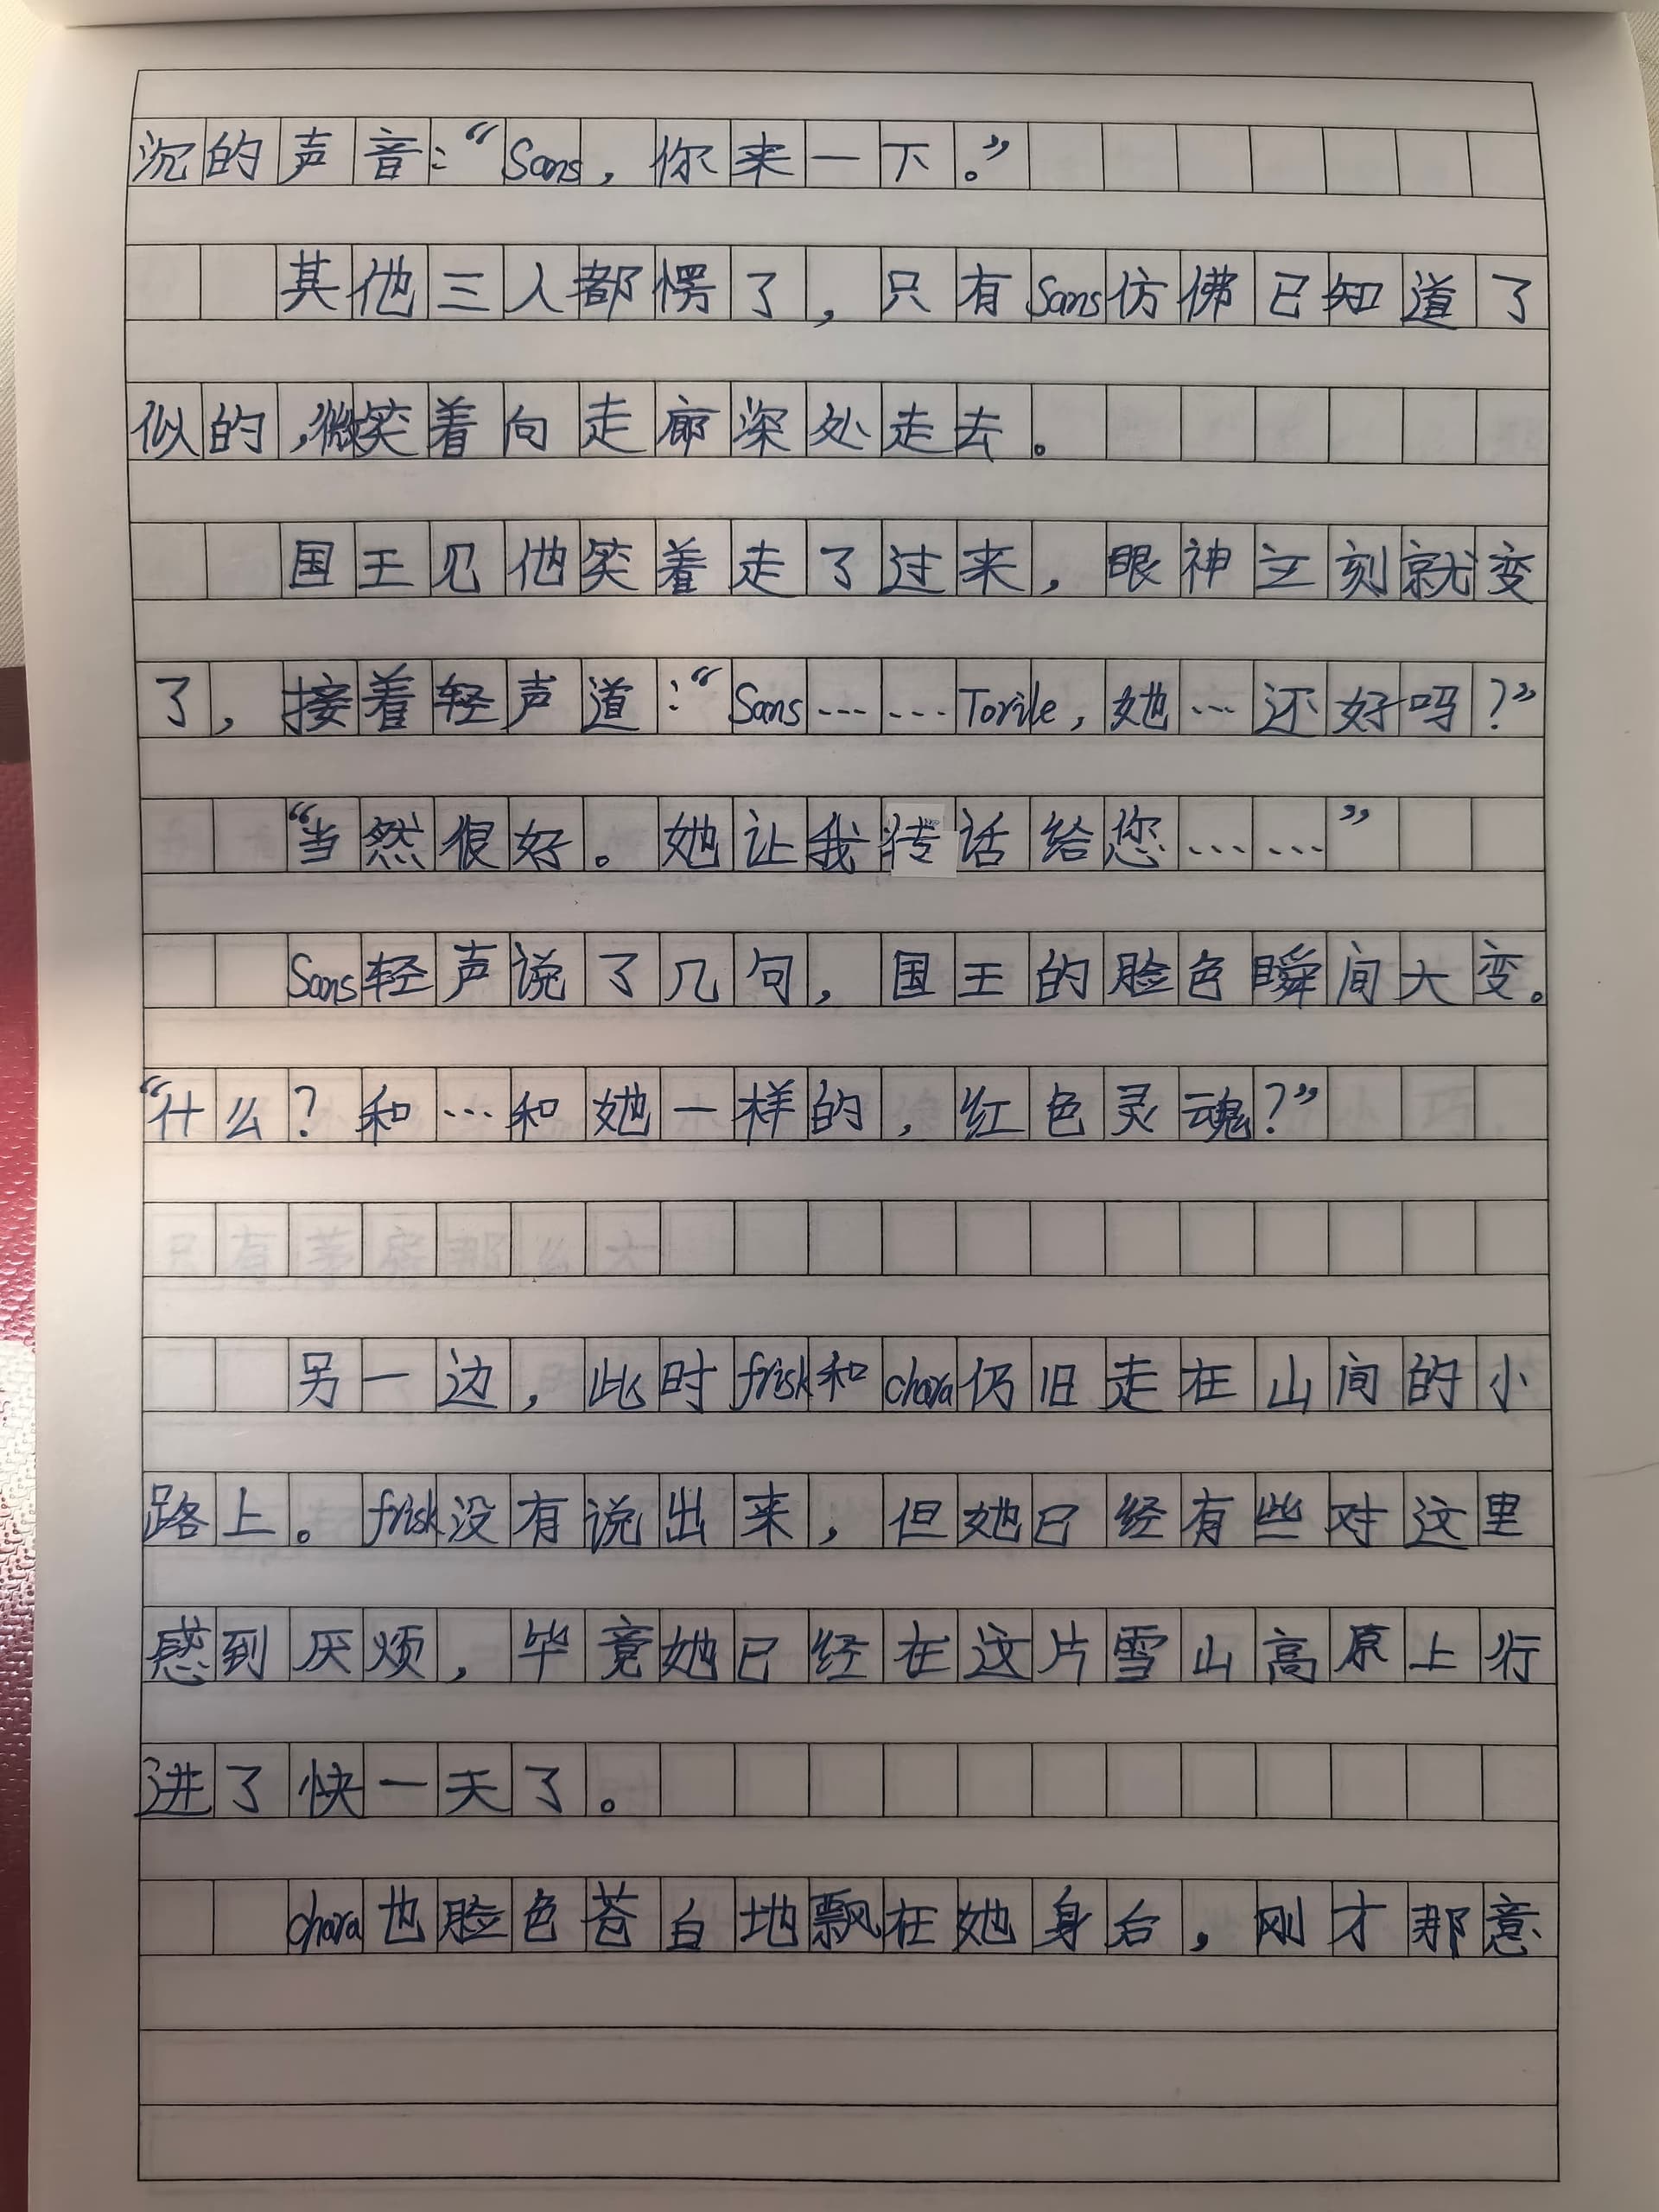 沉的声音：“Sans，你来一下。”
其他三人都愣了，只有Sans仿佛已知道了
似的，微笑着向走廊深处走去。
国王见他笑着走了过来，眼神立刻就变
了，接着轻声道：“Sans……Torile，她…还好吗？”
“当然很好。她让我传话给您……”
Sans轻声说了几句，国王的脸色瞬间大变。
“什么？和…和她一样的，红色灵魂？”
另一边，此时frisk和chara仍旧走在山间的小
路上。frisk没有说出来，但她已经有些对这里
感到厌烦，毕竟她已经在这片雪山高原上行
进了快一天了。
chara也脸色苍白地飘在她身后，刚才那意